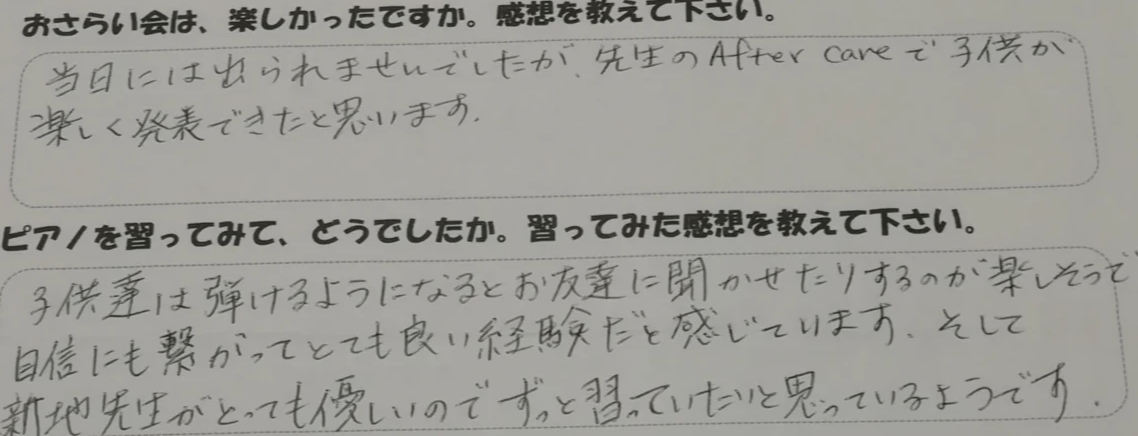 おさらい会は、楽しかったですか。感想を教えて下さい。
当日には出られませんでしたが、先生のAfter careで子供が
楽しく発表できたと思います.
ピアノを習ってみて、どうでしたか。習ってみた感想を教えて下さい。
子供達は弾けるようになるとお友達に聞かせたりするのが楽しそうで
自信にも繋がってとても良い経験だと感じています. そして
新地先生がとっても優しいのでずっと習っていたいと思っているようです.